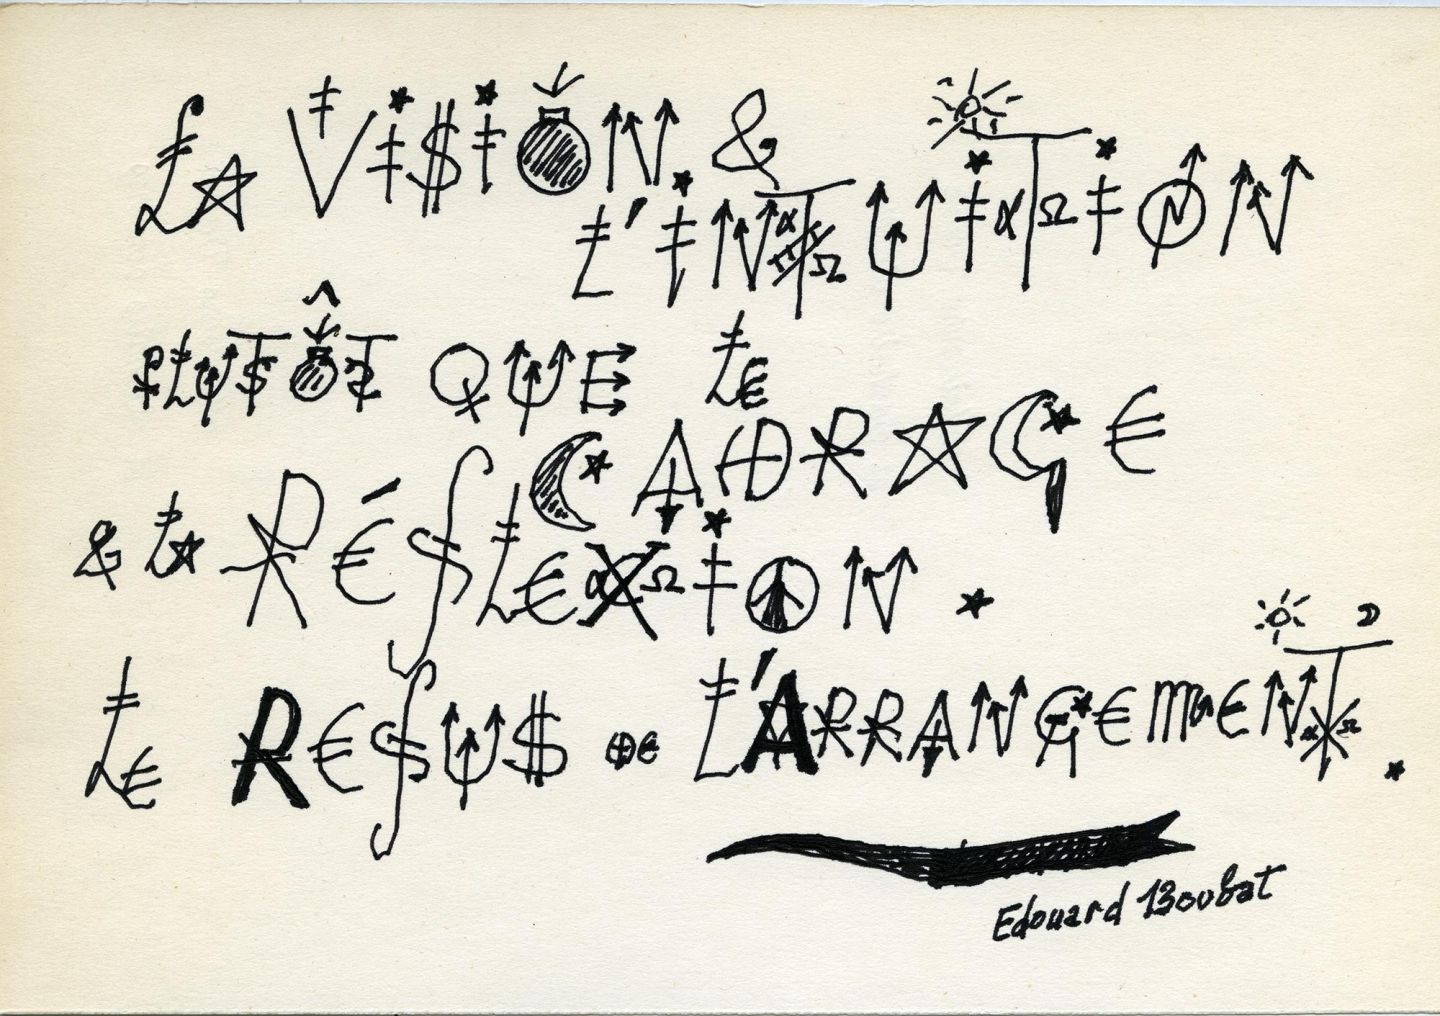 LA VISION &
L'INTUITION
PLUTÔT QUE LE
CADRAGE
& LA RÉFLEXION.
LE REFUS DE L'ARRANGEMENT.
Edouard Boubat